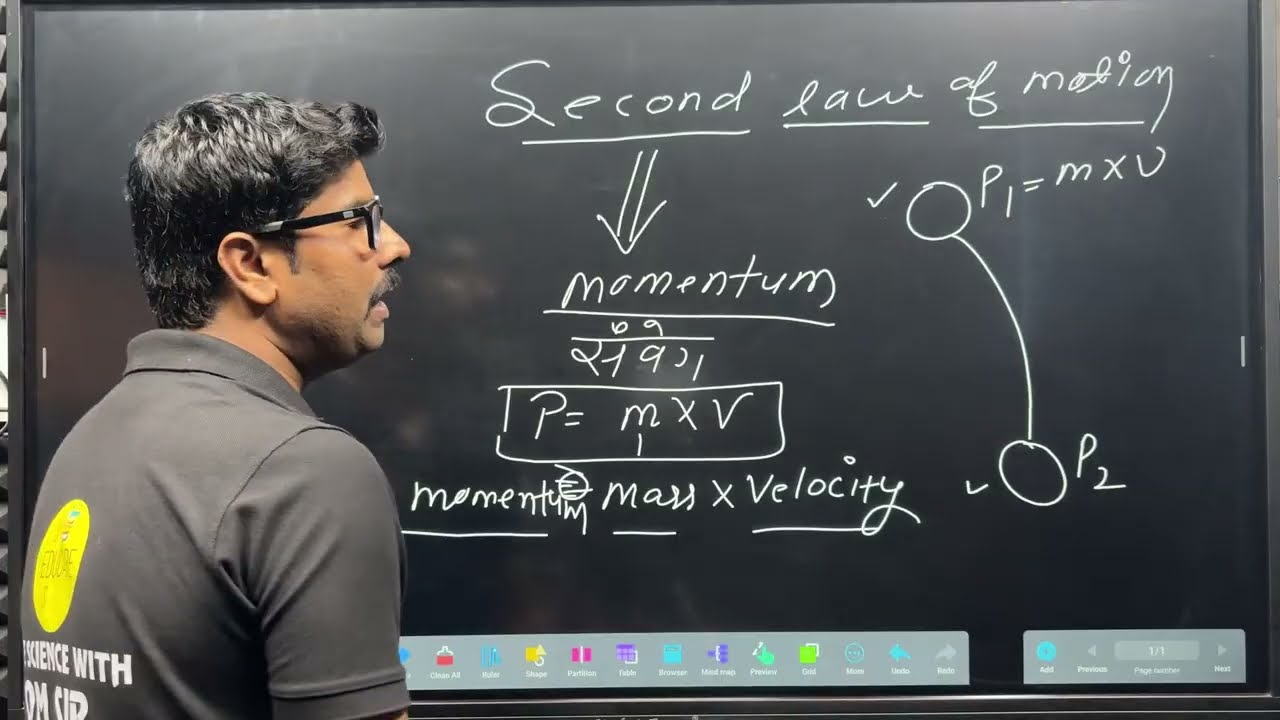 Second law of motion
P1 = m x V
momentum
संवेग
P = m x V
momentum = mass x velocity
P2
EDUCARE
SCIENCE WITH
OM SIR
Clean All
Ruler
Shape
Partition
Table
Browser
Mind map
Preview
Grid
More
Undo
Redo
Add
Previous
1/1
Page number
Next